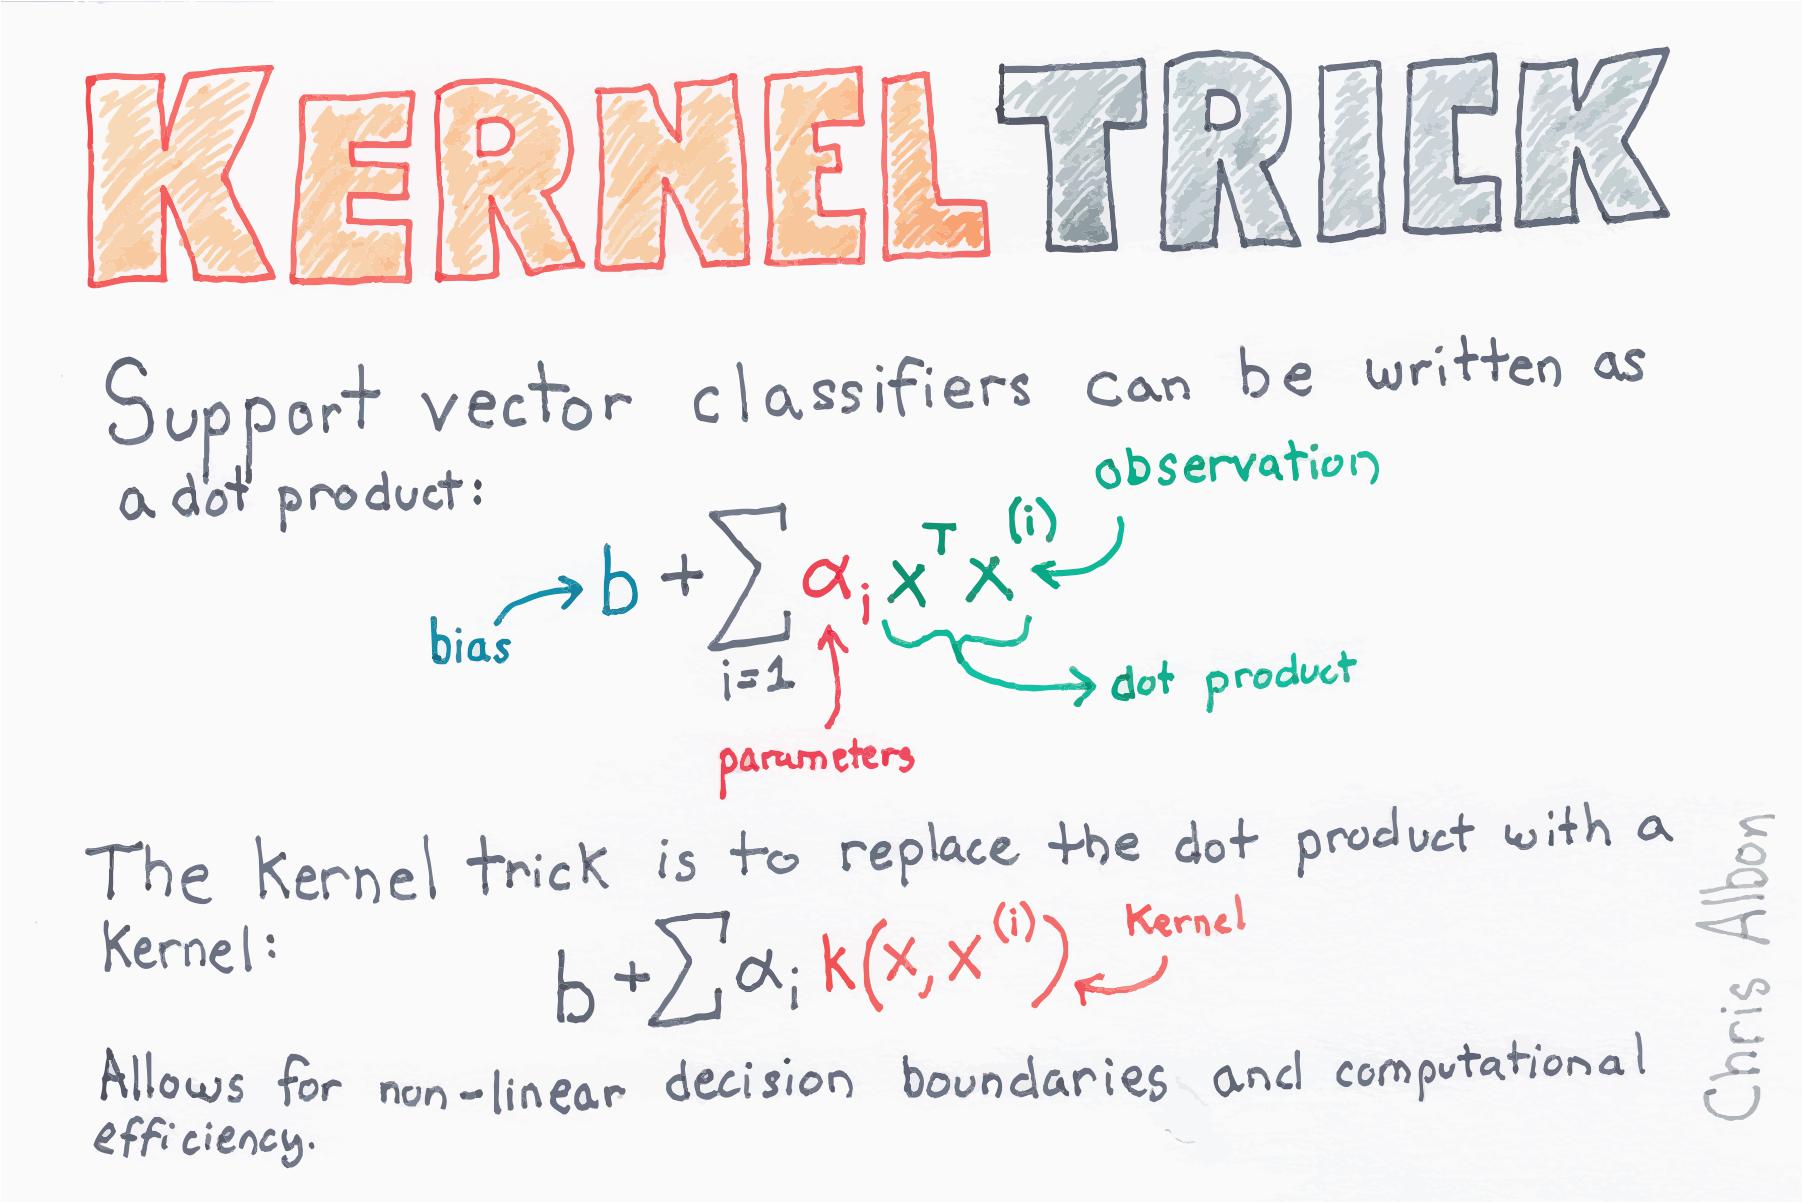 KERNEL TRICK
Support vector classifiers can be written as
a dot product:
observation
b + ∑ αᵢ xᵀ x⁽ⁱ⁾
bias
i=1
dot product
parameters
The kernel trick is to replace the dot product with a
Kernel:
Kernel
b + ∑ αᵢ k(x, x⁽ⁱ⁾)
Allows for non-linear decision boundaries and computational
efficiency.
Chris Albon